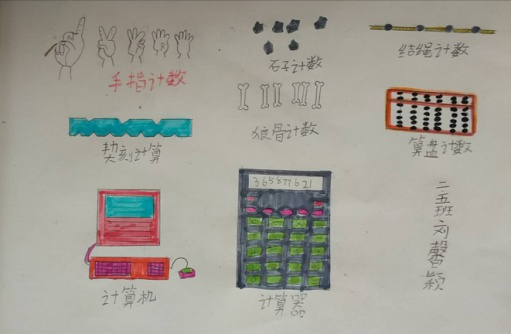 手指计数
石子计数
结绳计数
契刻计算
狼骨计数
算盘计数
365877621
计算机
计算器
二五班刘馨颖